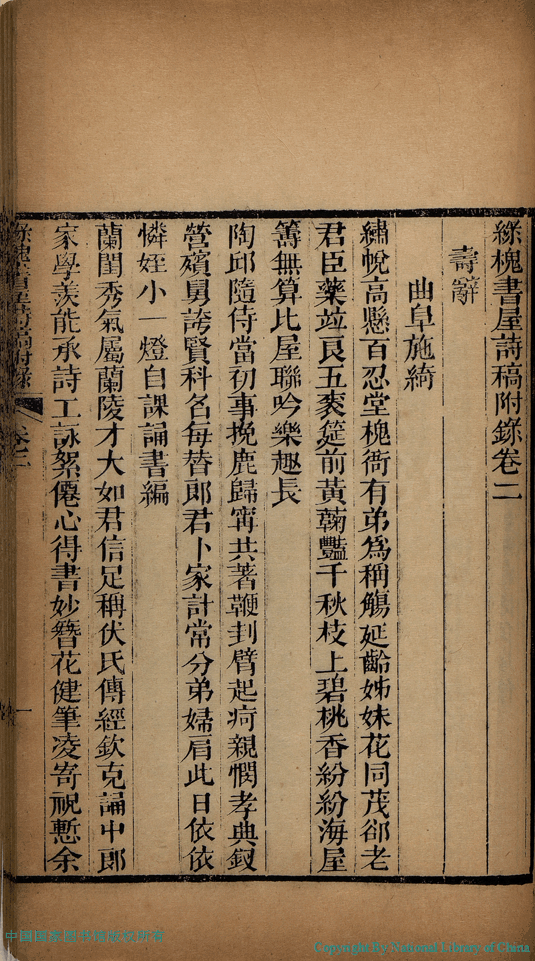 綵槐書屋詩稿附錄卷二
壽辭
曲阜施綺
繡帨高懸百忍堂槐衙有弟為稱觴延齡姊妹花同茂郤老
君臣藥竝良五袠筵前黃蘜豔千秋枝上碧桃香紛紛海屋
籌無算比屋聯吟樂趣長
陶邱隨侍當初事挽鹿歸甯共著鞭刲臂起疴親憫孝典釵
營殯舅誇賢科名每替郎君卜家計常分弟婦肩此日依依
憐姪小一燈自課誦書編
蘭閨秀氣屬蘭陵才大如君信足稱伏氏傳經欽克誦中郎
家學羨能承詩工詠絮僊心得書妙簪花健筆凌寄祝慙余
卷二
一
中国国家图书馆版权所有
Copyright By National Library of China